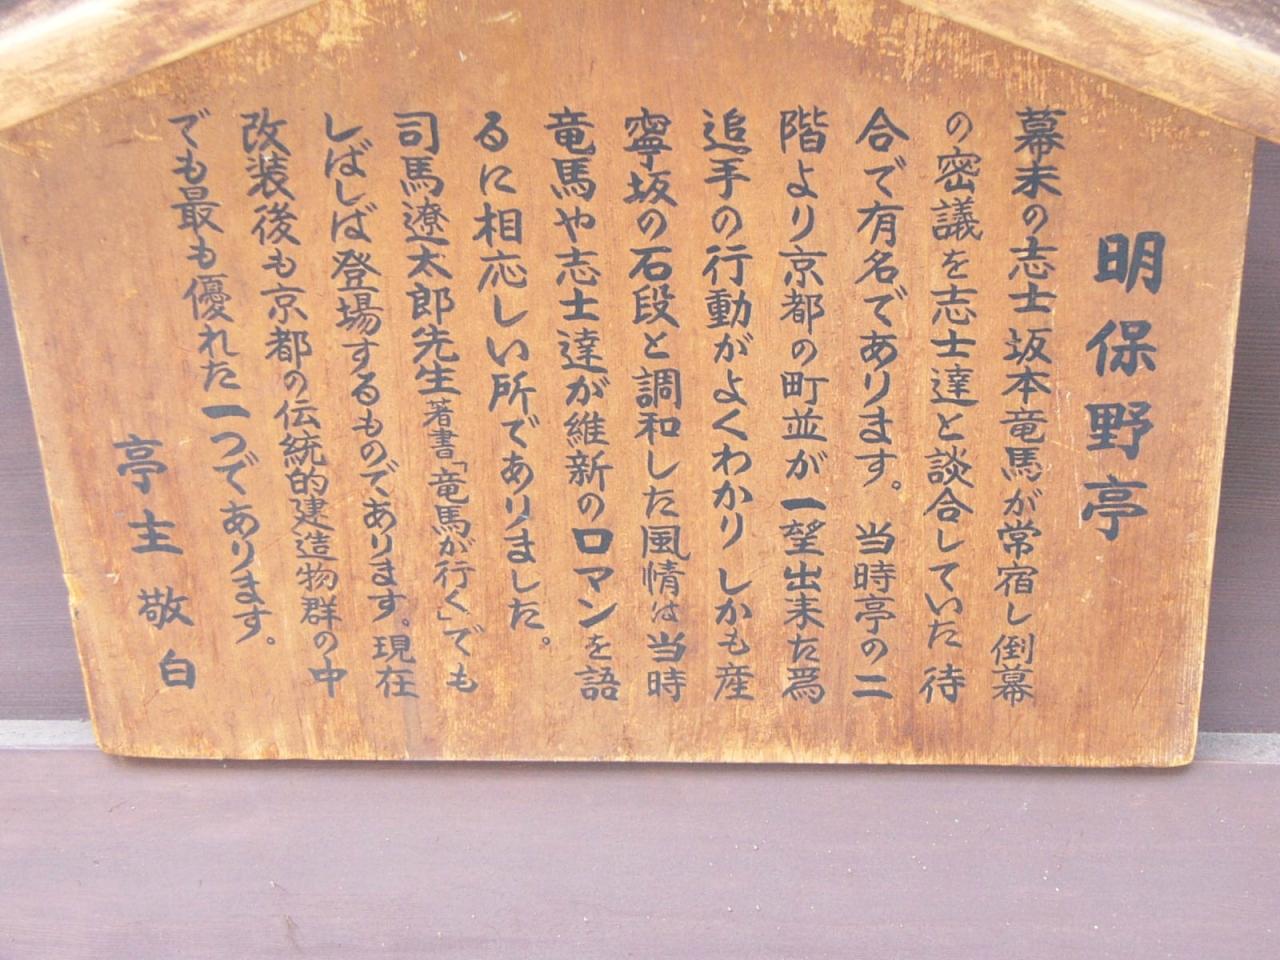 明保野亭
幕末の志士坂本竜馬が常宿し倒幕
の密議を志士達と談合していた待
合で有名であります。当時亭の二
階より京都の町並が一望出来た為
追手の行動がよくわかりしかも産
寧坂の石段と調和した風情は当時
竜馬や志士達が維新のロマンを語
るに相応しい所でありました。
司馬遼太郎先生著書「竜馬が行く」でも
しばしば登場するものであります。現在
改装後も京都の伝統的建造物群の中
でも最も優れた一つであります。
亭主敬白